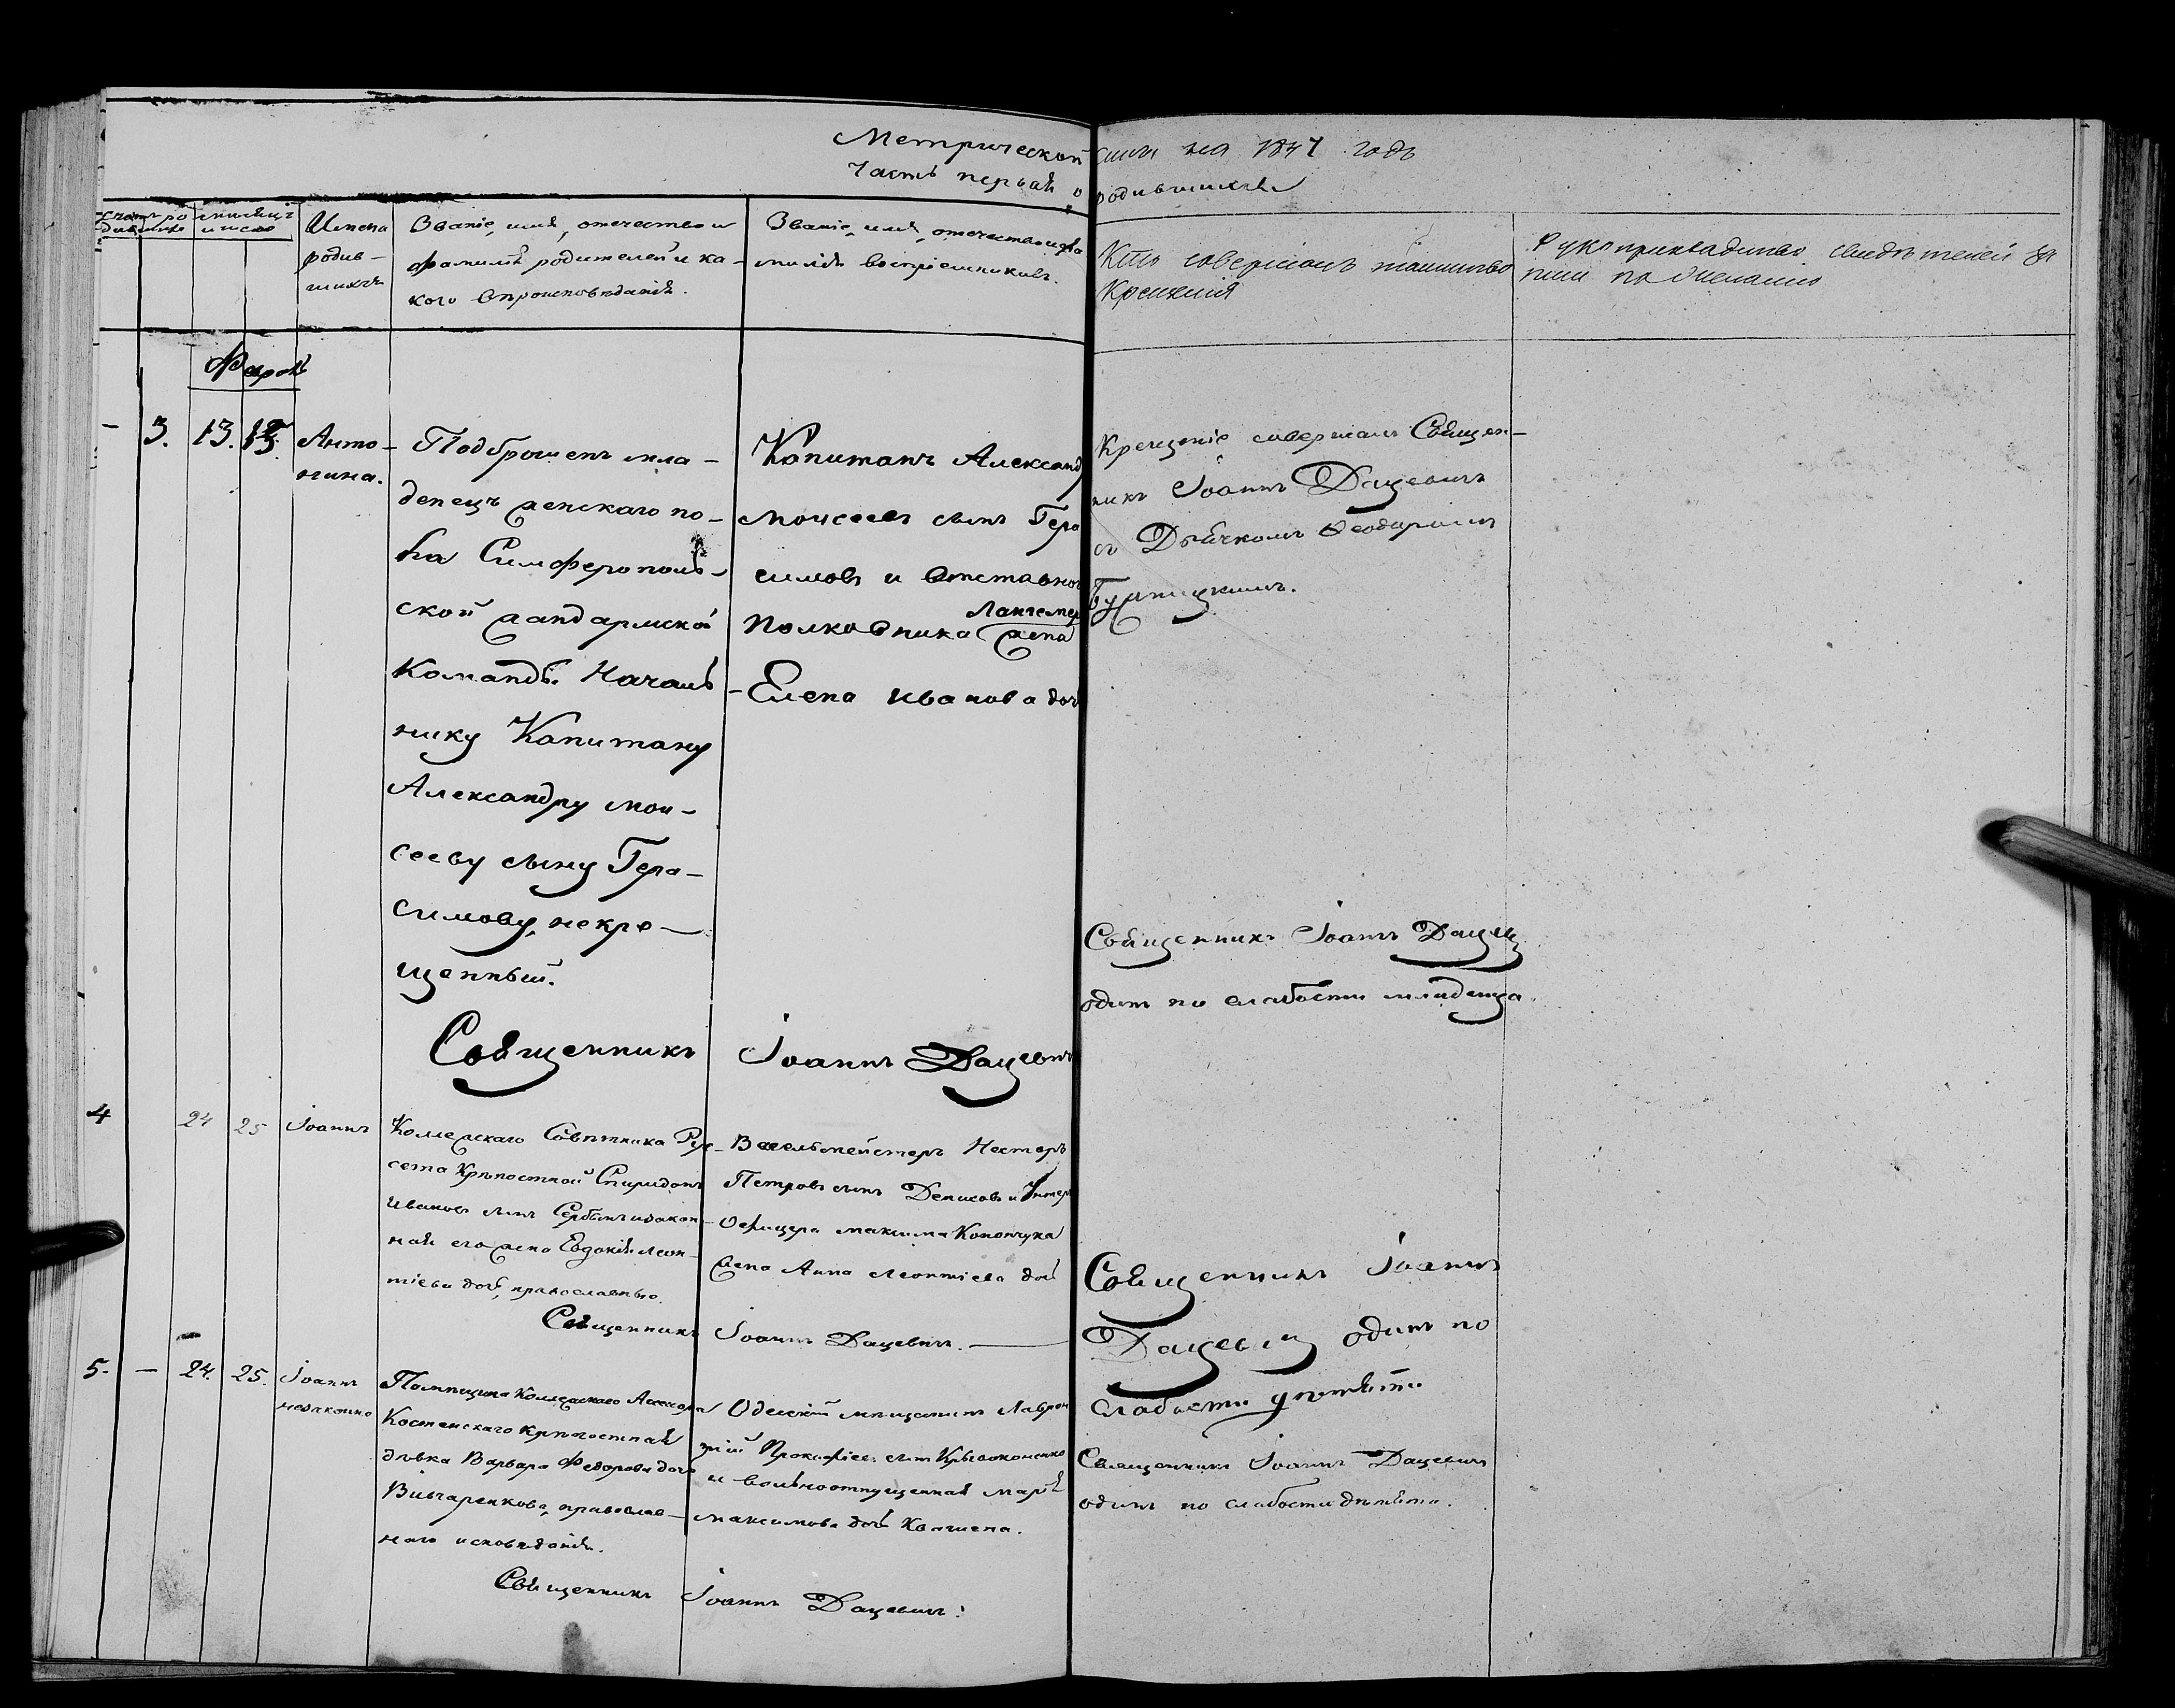 Метрической книги на 1847 годъ
Часть первая о родившихся
Счетъ ро
дившихся
мѣсяцъ
и число
Имена
родив-
шихся
Званіе, имя, отечество и
фамилія родителей и ка-
кого вѣроисповѣданія.
Званіе, имя, отечество и фа
милія воспріемниковъ.
Кто совершалъ таинство
Крещенія
Рукоприкладство свидѣтелей за
писи по желанію
Февраль
- 3. 13. 15.
Анто-
нина.
Подброшенъ мла-
денецъ женскаго по-
ла Симферополь-
ской жандармской
Команды Началь-
нику Капитану
Александру Мои-
сееву сыну Гера-
симову, некре-
щенный.
Капитанъ Александ
Моисеевъ сынъ Гера
симовъ и Отставнаго
Полковника жена
Елена Иванова доч
Крещеніе совершалъ Священ-
никъ Іоаннъ Дацевичъ
съ Дьячкомъ Ѳеодоромъ
Священникъ Іоаннъ Дацевичъ
Священникъ Іоаннъ Дацевичъ
одинъ по слабости младенца
4 24 25
Іоаннъ
Коллежскаго Совѣтника Рус-
сета Крѣпостной Спиридонъ
Ивановъ сынъ Сербинъ и закон-
ная его жена Евдокія Леон-
тіева дочь, православные.
Вахмейстеръ Несторъ
Петровъ сынъ Денисовъ и Унтеръ
Офицера Максима Конончука
жена Анна Леонтіева дочь
Священникъ Іоаннъ
Дацевичъ одинъ по
слабости дитяти
Священникъ Іоаннъ Дацевичъ.
5. - 24. 25.
Іоаннъ
незаконно
Помѣщика Коллежскаго Ассесора
Костенскаго крѣпостная
дѣвка Варвара Федорова дочь
Вивчаренкова, православ-
наго исповѣданія.
Одесскій мѣщанинъ Лаврен
тій Прокофіевъ сынъ
и вольноотпущенная Марія
Максимова дочь
Священникъ Іоаннъ Дацевичъ
одинъ по слабости дитяти.
Священникъ Іоаннъ Дацевичъ.